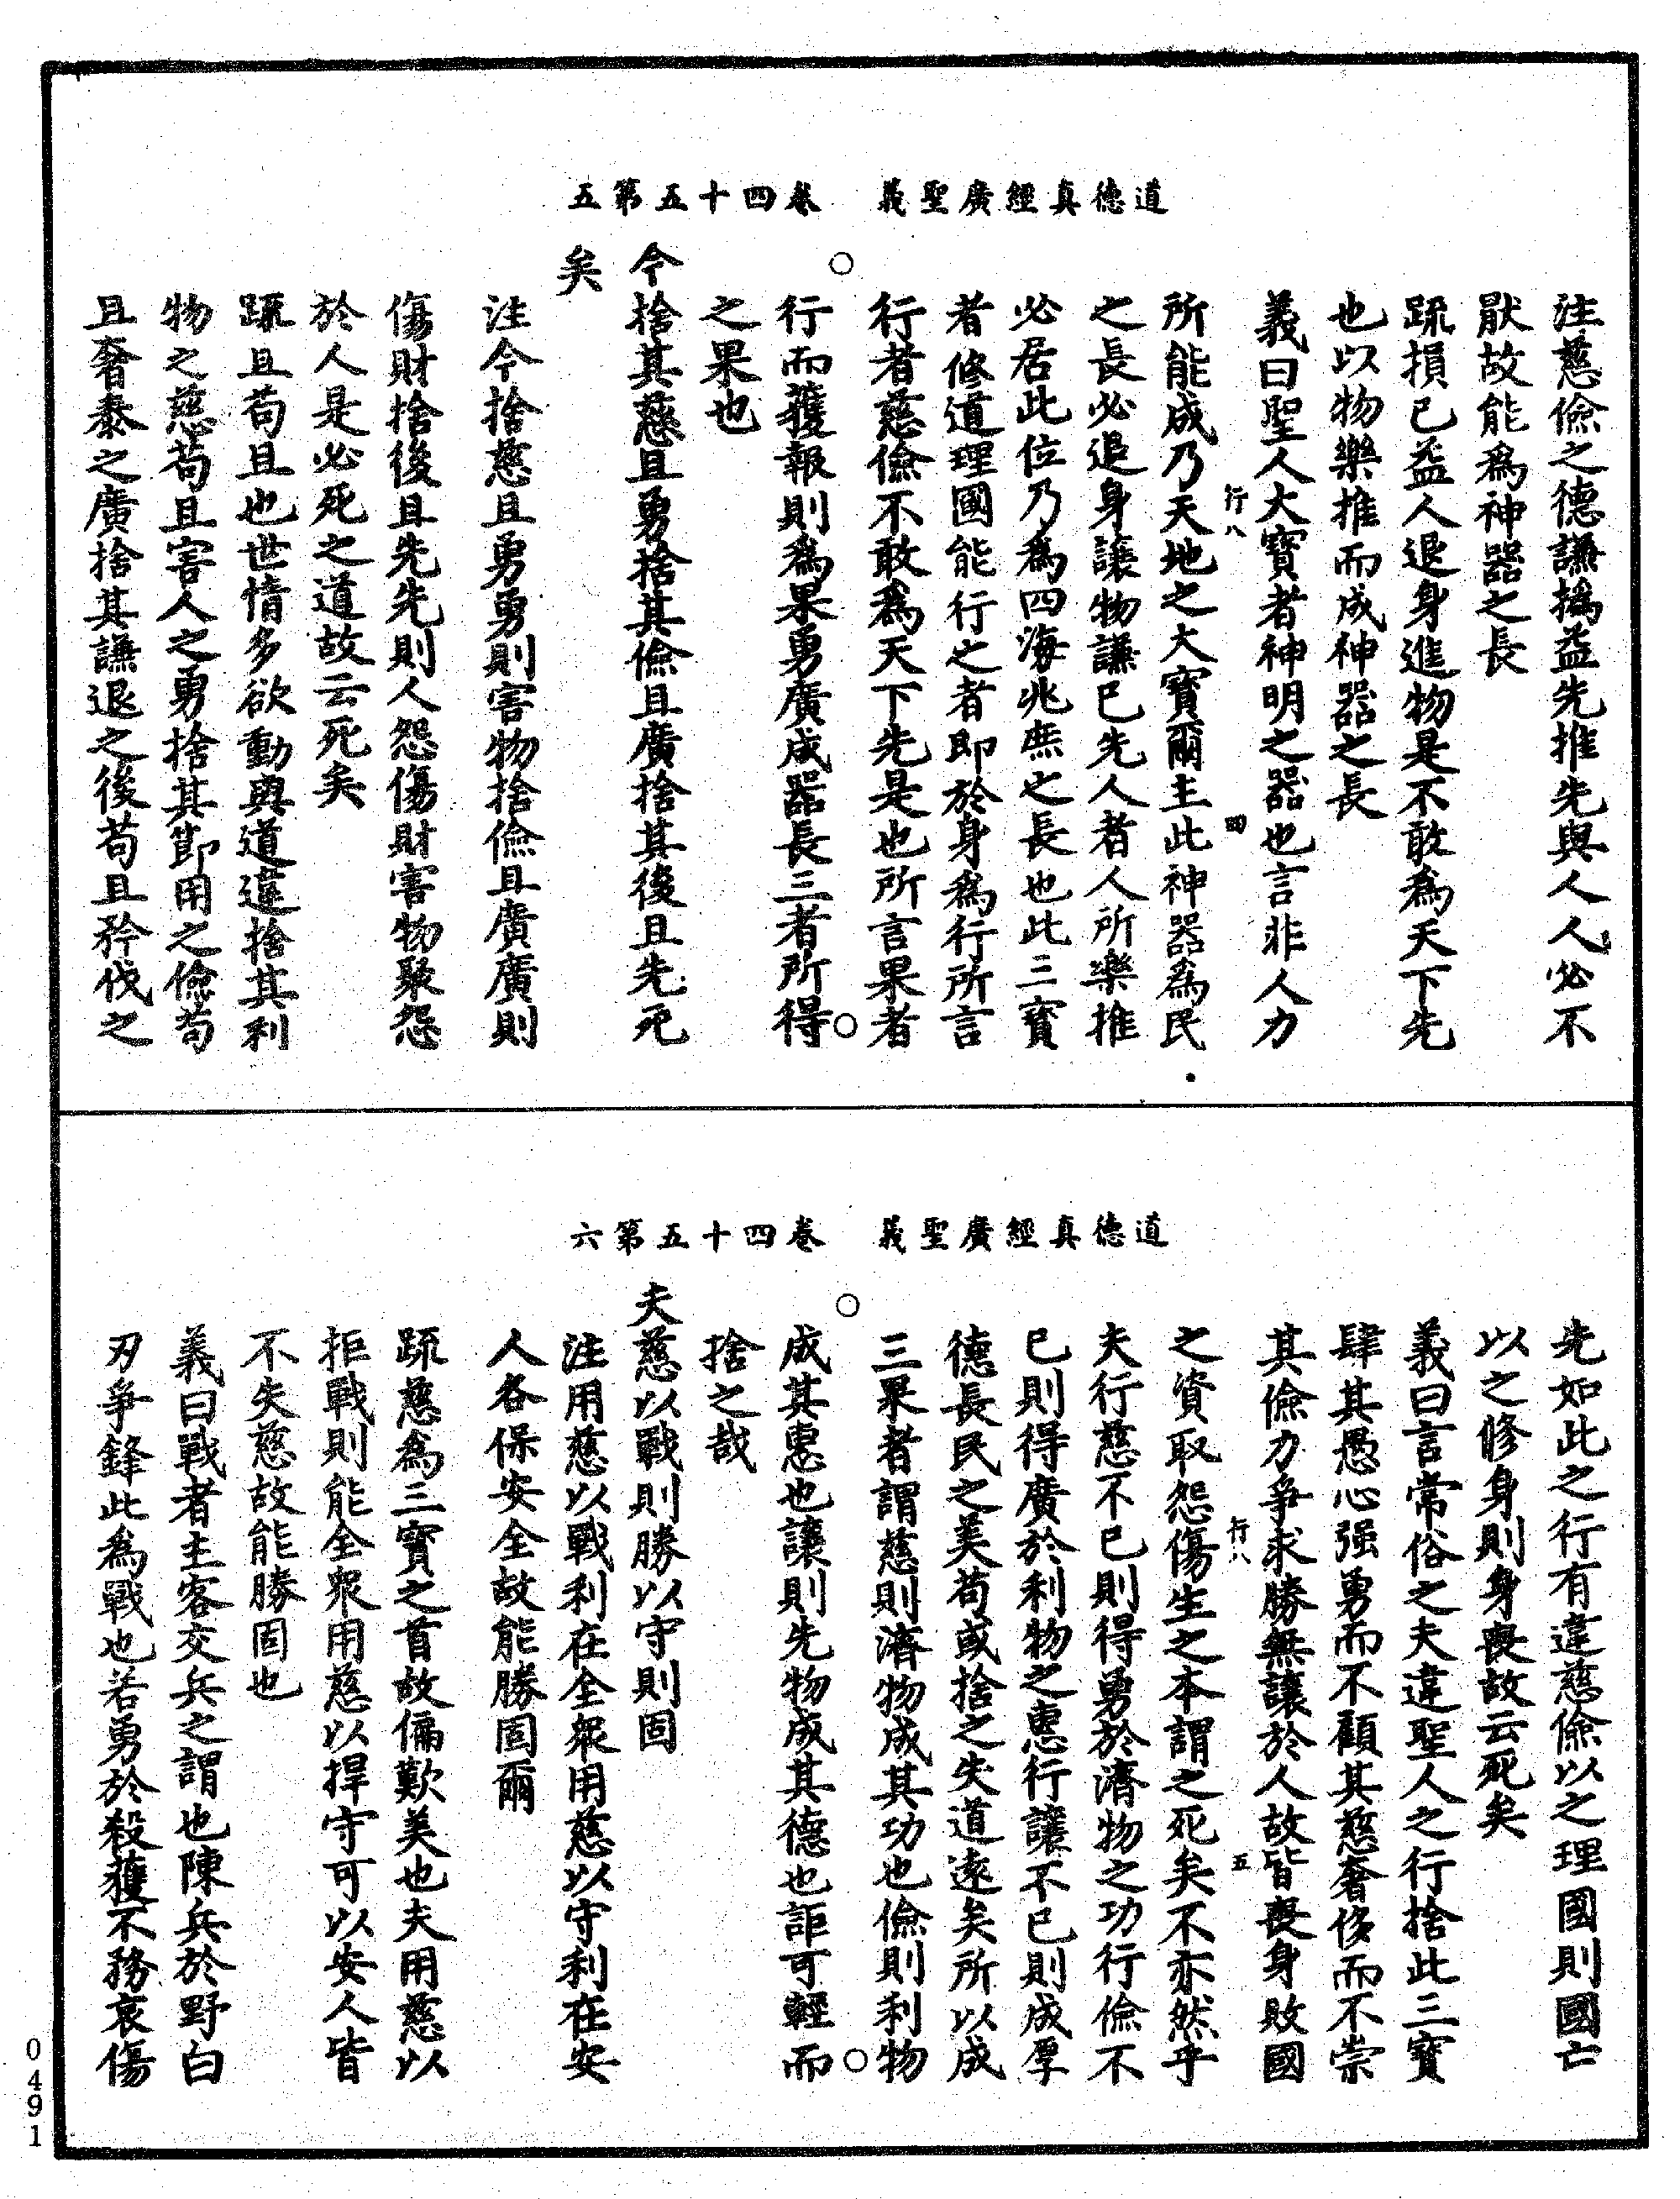 道德真經廣聖義　卷四十五第五
注慈儉之德謙撝益先推先與人人必不
猒故能爲神器之長
疏損已益人退身進物是不敢爲天下先
也以物樂推而成神器之長
義曰聖人大寶者神明之器也言非人力
行八　四
所能成乃天地之大寶爾主此神器爲民
之長必退身讓物謙已先人者人所樂推
必居此位乃爲四海兆庶之長也此三寶
者修道理國能行之者即於身爲行所言
行者慈儉不敢爲天下先是也所言果者
行而獲報則爲果勇廣成器長三者所得
之果也
今捨其慈且勇捨其儉且廣捨其後且先死
矣
注今捨慈且勇勇則害物捨儉且廣廣則
傷財捨後且先先則人怨傷財害物聚怨
於人是必死之道故云死矣
疏且苟且也世情多欲動與道違捨其利
物之慈苟且害人之勇捨其節用之儉苟
且奢泰之廣捨其謙退之後苟且矜伐之
道德真經廣聖義　卷四十五第六
先如此之行有違慈儉以之理國則國亡
以之修身則身喪故云死矣
義曰言常俗之夫違聖人之行捨此三寶
肆其愚心强勇而不顧其慈奢侈而不崇
其儉力爭求勝無讓於人故皆喪身敗國
行八　五
之資取怨傷生之本謂之死矣不亦然乎
夫行慈不已則得勇於濟物之功行儉不
已則得廣於利物之惠行讓不已則成厚
德長民之美苟或捨之失道遠矣所以成
三果者謂慈則濟物成其功也儉則利物
成其惠也讓則先物成其德也詎可輕而
捨之哉
夫慈以戰則勝以守則固
注用慈以戰利在全衆用慈以守利在安
人各保安全故能勝固爾
疏慈爲三寶之首故偏歎美也夫用慈以
拒戰則能全衆用慈以捍守可以安人皆
不失慈故能勝固也
義曰戰者主客交兵之謂也陳兵於野白
刃爭鋒此爲戰也若勇於殺獲不務哀傷
0491